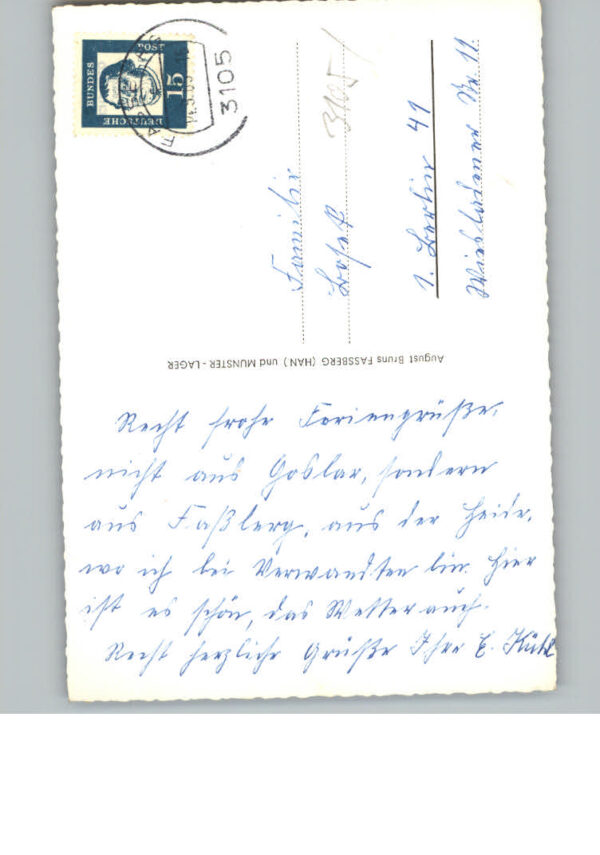 DEUTSCHE
BUNDES
POST
15
3105
3105
Familie
1. Berlin 41
Wiesbadener Str. 11.
August Bruns FASSBERG (HAN) und MUNSTER-LAGER
Recht frohe Feriengrüße,
nicht aus Goslar, sondern
aus Faßberg, aus der Heide,
wo ich bei Verwandten bin. Hier
ist es schön, das Wetter auch.
Recht herzliche Grüße Ihre E.